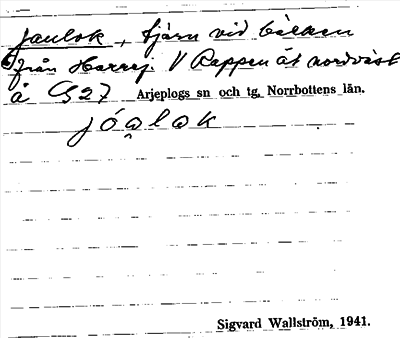 Jaulok, tjärn vid bäcken
från Harrej. V Rappen åt nordväst
å G27 Arjeplogs sn och tg, Norrbottens län.
jóa̭lak
Sigvard Wallström, 1941.